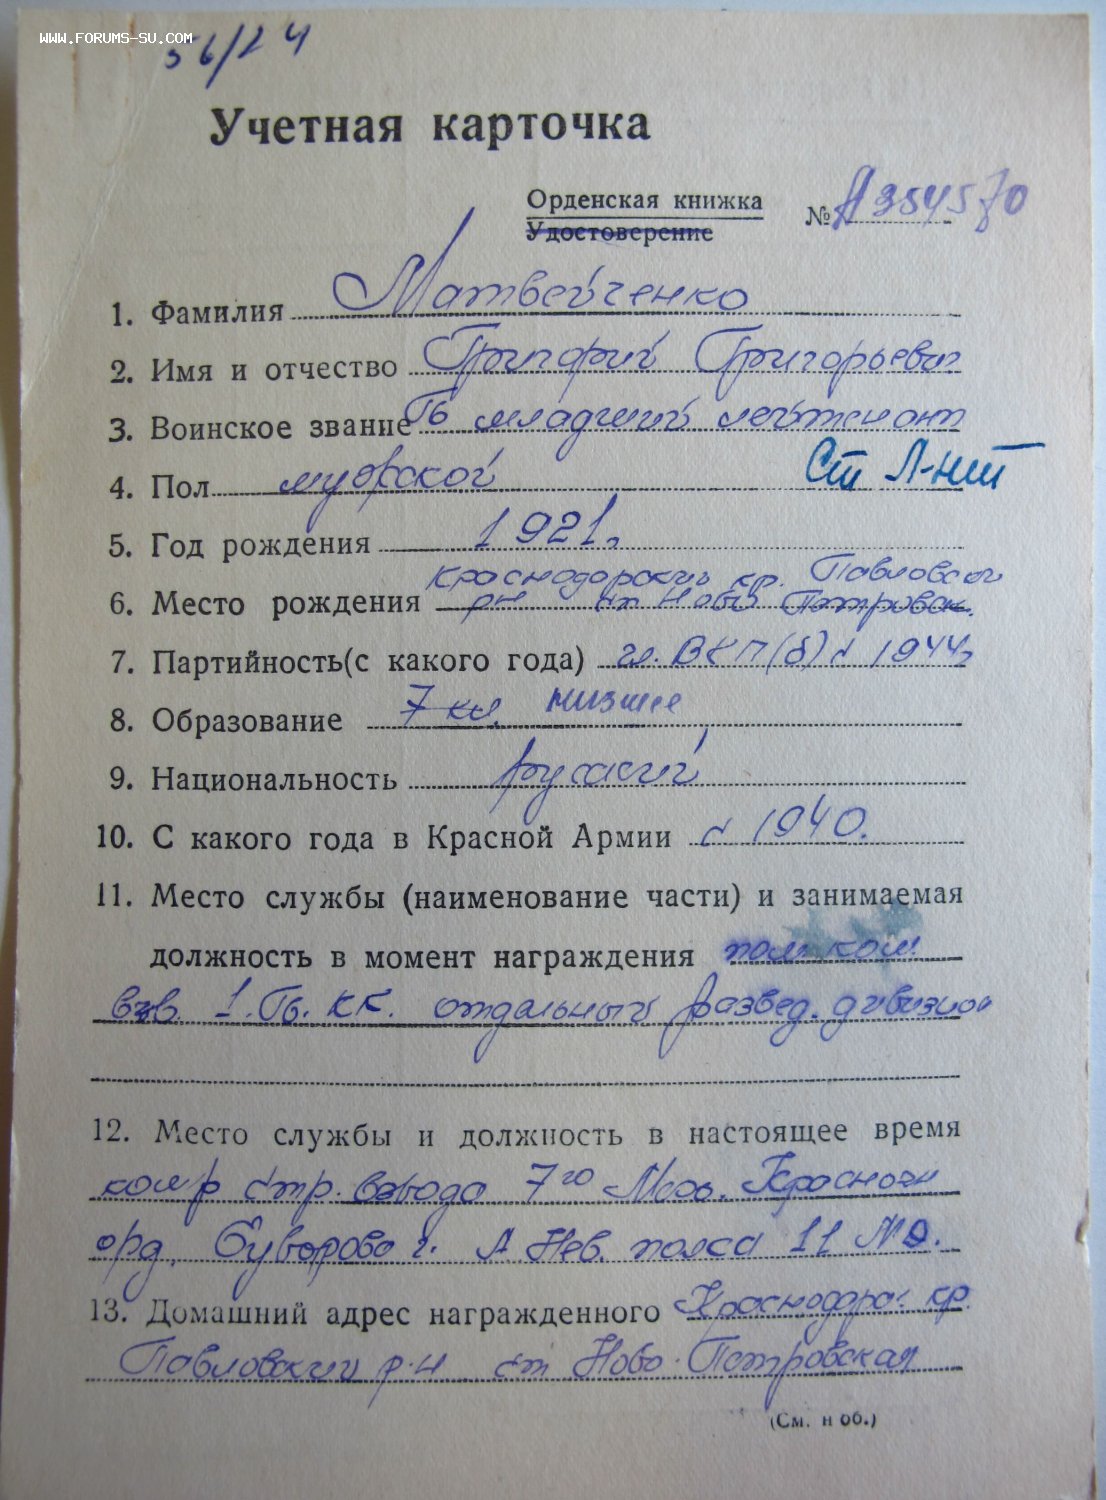 www.forums-su.com
56/24
Учетная карточка
Орденская книжка
Удостоверение
№ А 354570
1. Фамилия Матвейченко
2. Имя и отчество Григорий Григорьевич
3. Воинское звание Гв младший лейтенант
Ст Л-нт
4. Пол мужской
5. Год рождения 1921г.
Краснодарский кр. Павловский
6. Место рождения рн ст Ново Петровск.
7. Партийность(с какого года) чл. ВКП(б) с 1944г
8. Образование 7 кл. низшее
9. Национальность русский
10. С какого года в Красной Армии с 1940.
11. Место службы (наименование части) и занимаемая
должность в момент награждения пом. ком.
взв. 1 Гв. КК. отдельный развед. дивизион
12. Место службы и должность в настоящее время
ком р стр. взвода 7го Мех. Красноз
орд. Суворово и А Нев. полка 11 МД.
13. Домашний адрес награжденного Краснодарс. кр.
Павловский р-н ст Ново-Петровская
(См. н об.)